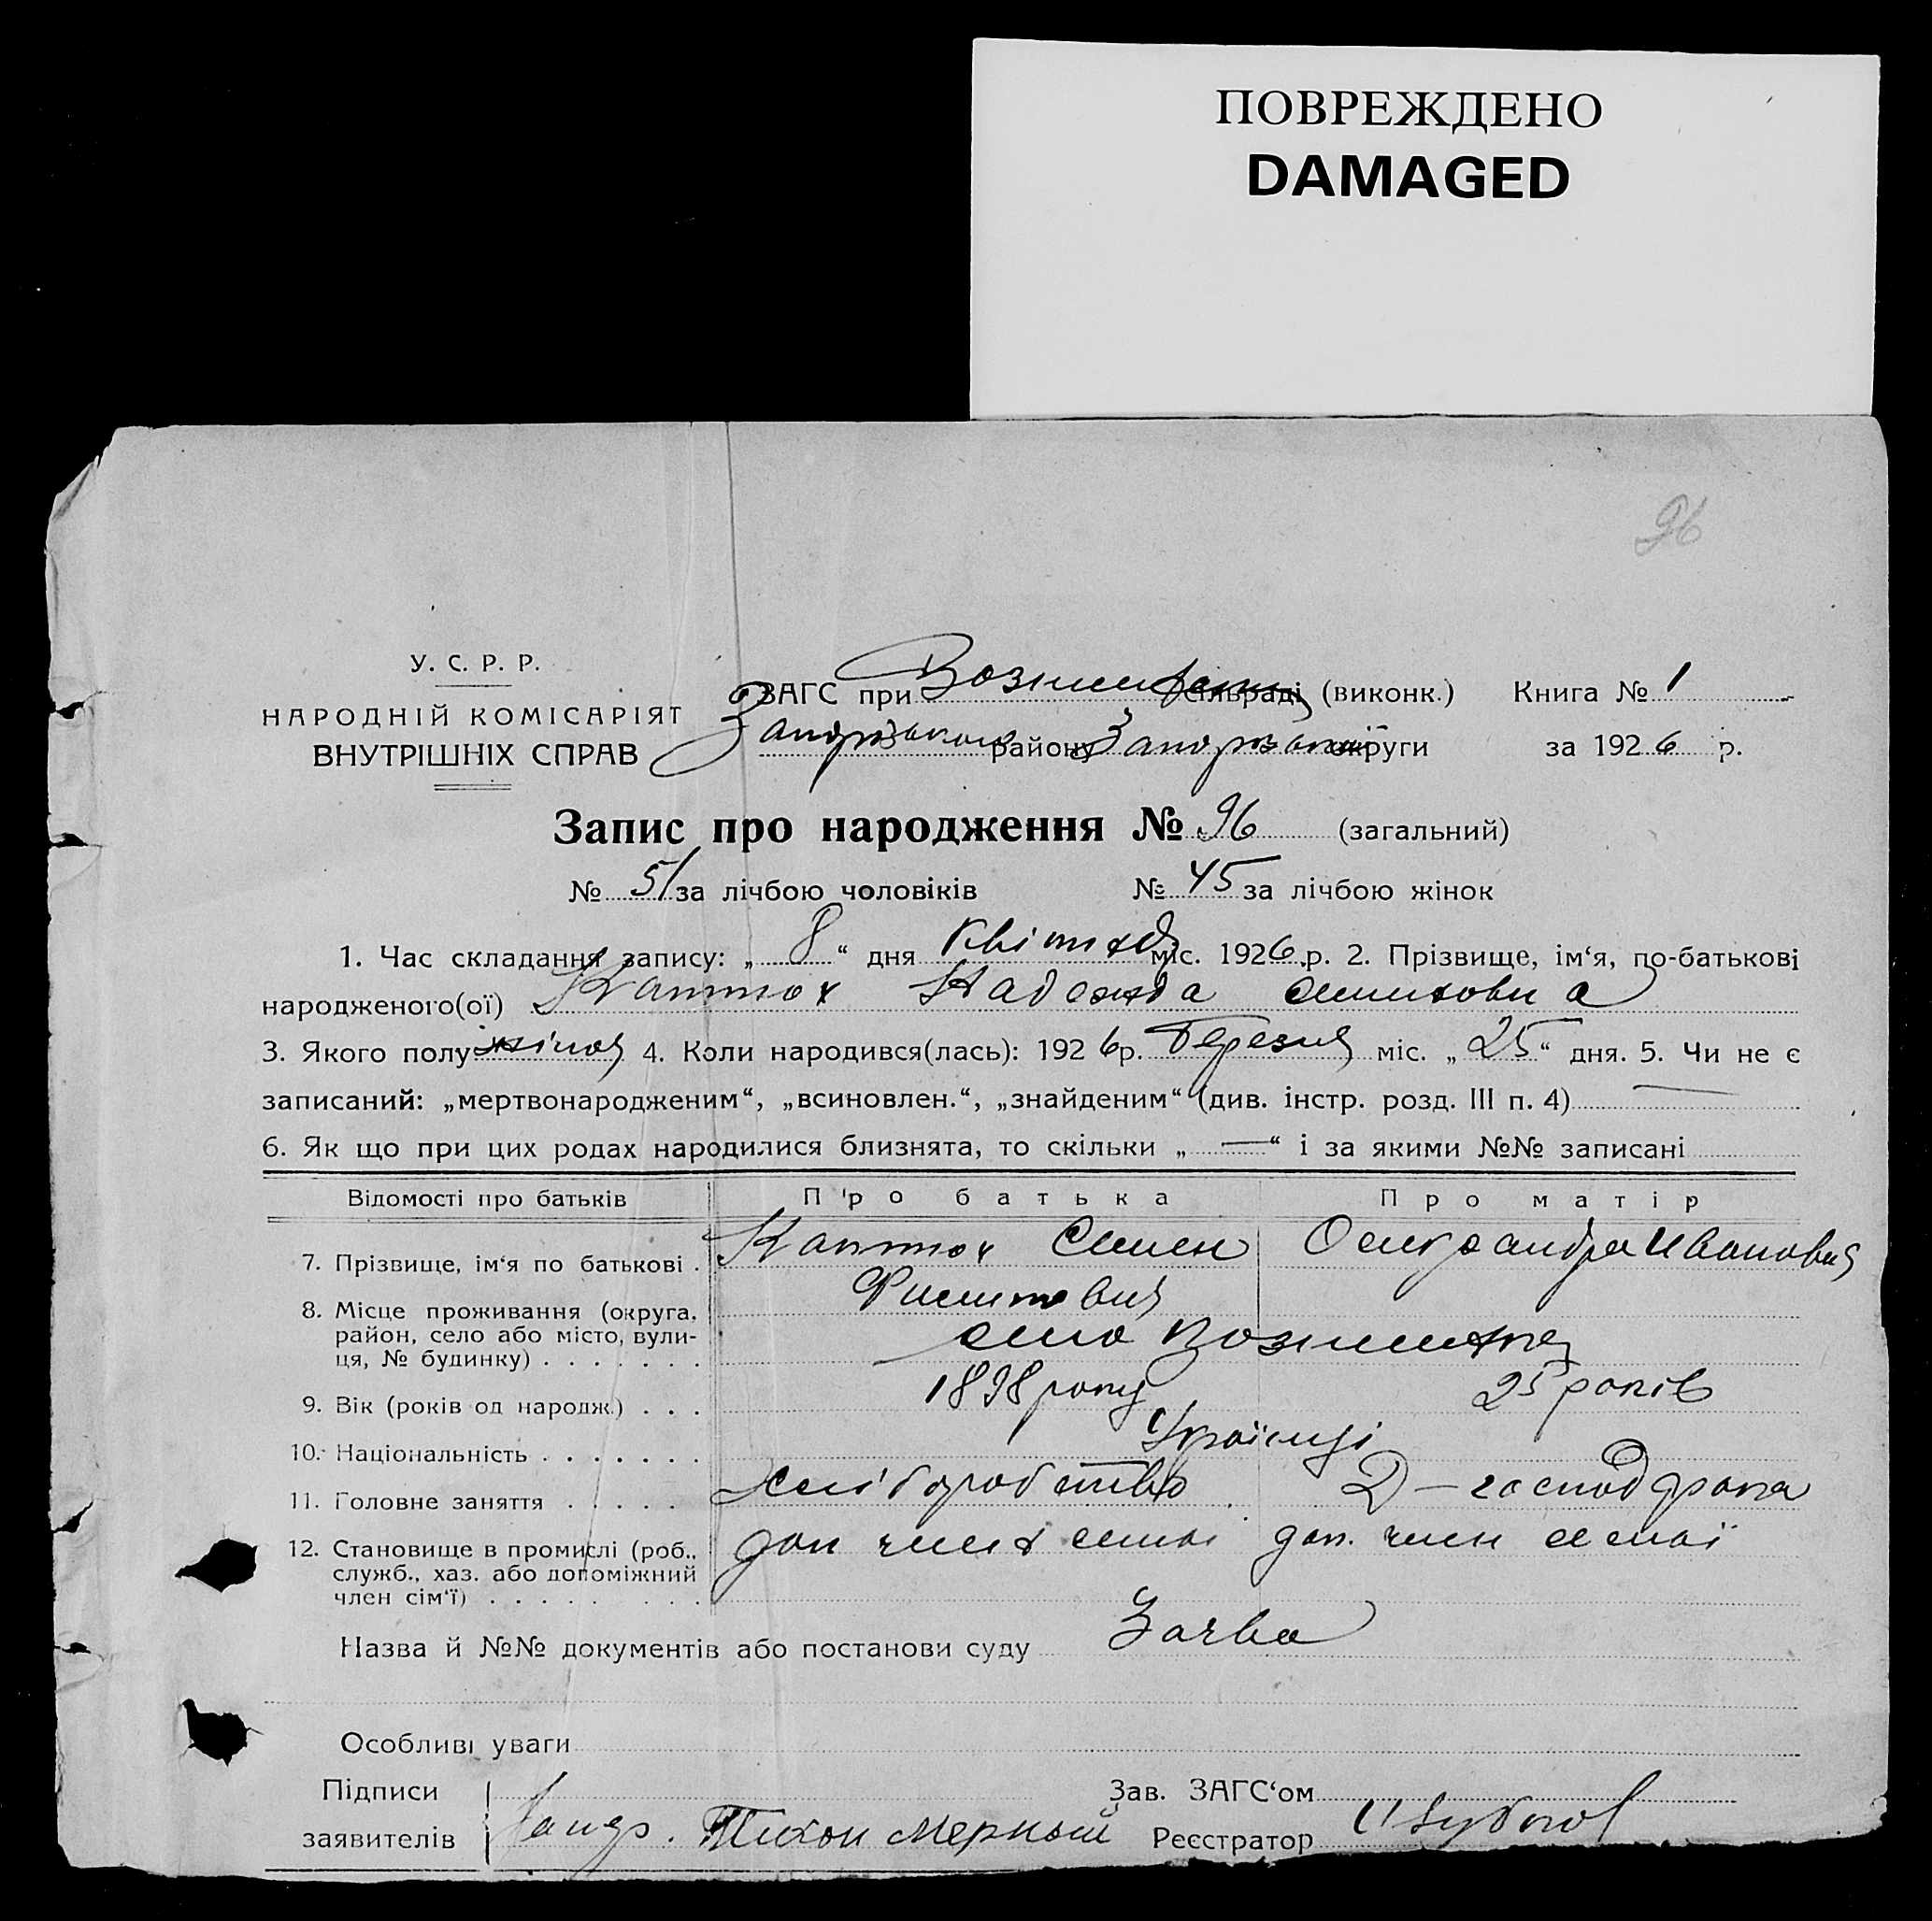 ПОВРЕЖДЕНО
DAMAGED
96
У. С. Р. Р.
НАРОДНІЙ КОМІСАРІЯТ
ВНУТРІШНІХ СПРАВ
ЗАГС при сільраді (виконк.) Книга № 1
району округи за 1926 р.
Запис про народження № 96 (загальний)
№ 51 за лічбою чоловіків № 45 за лічбою жінок
1. Час складання запису: „ 8 “ дня квітня міс. 1926 р. 2. Прізвище, ім‘я, по-батькові
народженого(ої) Каптюх Надежда Семеновна
3. Якого полу жіноч 4. Коли народився(лась): 1926 р. Березня міс. „ 25 “ дня. 5. Чи не є
записаний: „мертвонародженим“, „всиновлен.“, „знайденим“ (див. інстр. розд. III п. 4) —
6. Як що при цих родах народилися близнята, то скільки „ — “ і за якими №№ записані
Відомості про батьків Про батька Про матір
7. Прізвище, ім‘я по батькові . Каптюх Семен
Филипович
8. Місце проживання (округа,
район, село або місто, вули-
ця, № будинку) . . . . . . . село
9. Вік (років од народж.) . . . 1898 року 25 років
10. Національність . . . . . . . Українці
11. Головне заняття . . . . . хліборобство Д – господарка
12. Становище в промислі (роб..
служб., хаз. або допоміжний
член сім‘ї) . . . . . . . . доп. член семьї
Назва й №№ документів або постанови суду
Особливі уваги
Підписи
заявителів Тихон Мерный
Зав. ЗАГС‘ом
Реєстратор